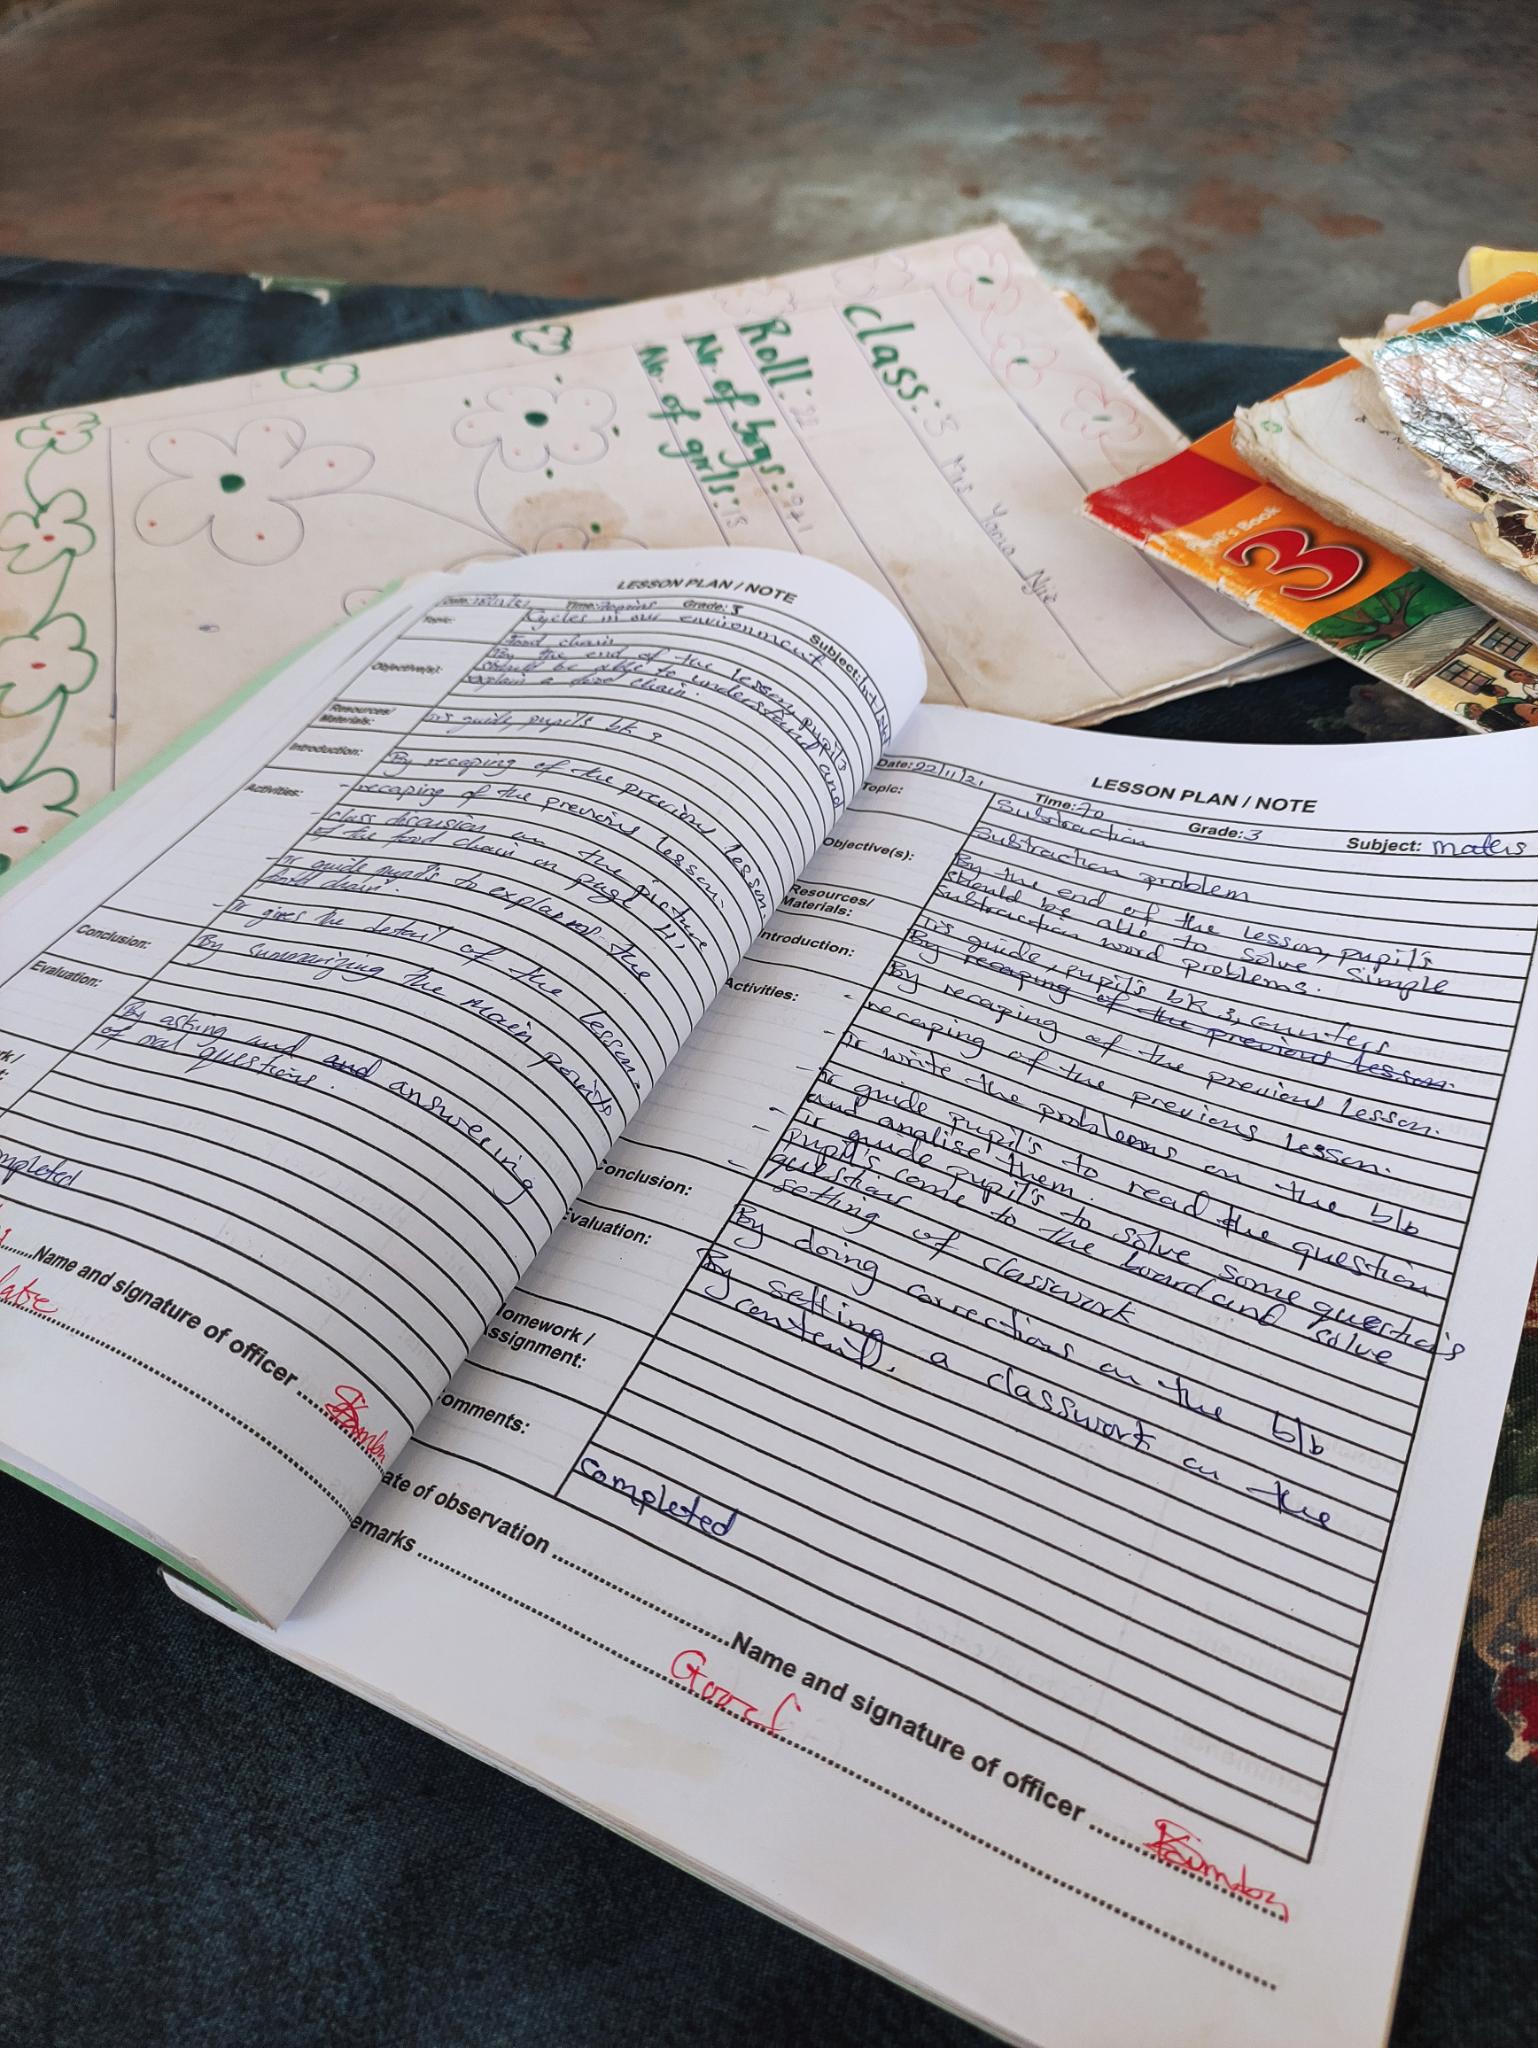 class: 3 Mrs Yama Njie
Roll: 22
Nr. of boys: 9+1
No. of girls: 13
Pupil's Book
3
LESSON PLAN / NOTE
Date: Time: 70mins Grade: 3 Subject:
Topic: Cycles in our environment
Food chain
Objective(s): By the end of the lesson, pupil's
should be able to understand and
explain a food chain.
Resources/
Materials: Tr's guide, pupil's bk 3
Introduction: By recaping of the previous lesson.
Activities: - recaping of the previous lesson.
- class discusion on the picture
of the food chain on page 41
- Tr guide pupil's to explain the
food chain.
- Tr gives the detail of the lesson.
Conclusion: By summarizing the main points
Evaluation: By asking and and answering
of oral questions.
completed
Name and signature of officer
LESSON PLAN / NOTE
Date: 22/11/21 Time: 70 Grade: 3 Subject: maths
Topic: Subtraction
Subtraction problem
Objective(s): By the end of the lesson, pupil's
should be able to solve simple
subtraction word problems.
Resources/
Materials: Tr's guide, pupil's bk 3, counters
Introduction: By recaping of the previous lesson.
By recaping of the previous lesson.
Activities: - recaping of the previous lesson.
- Tr write the problems on the b/b
- Tr guide pupil's to read the question
and analise them.
- Tr guide pupil's to solve some question's
- pupil's come to the board and solve
question
setting of classwork
Conclusion: By doing corrections on the b/b
Evaluation: By setting a classwork on the
content.
Homework /
Assignment:
Comments: completed
Date of observation Name and signature of officer
Remarks Good